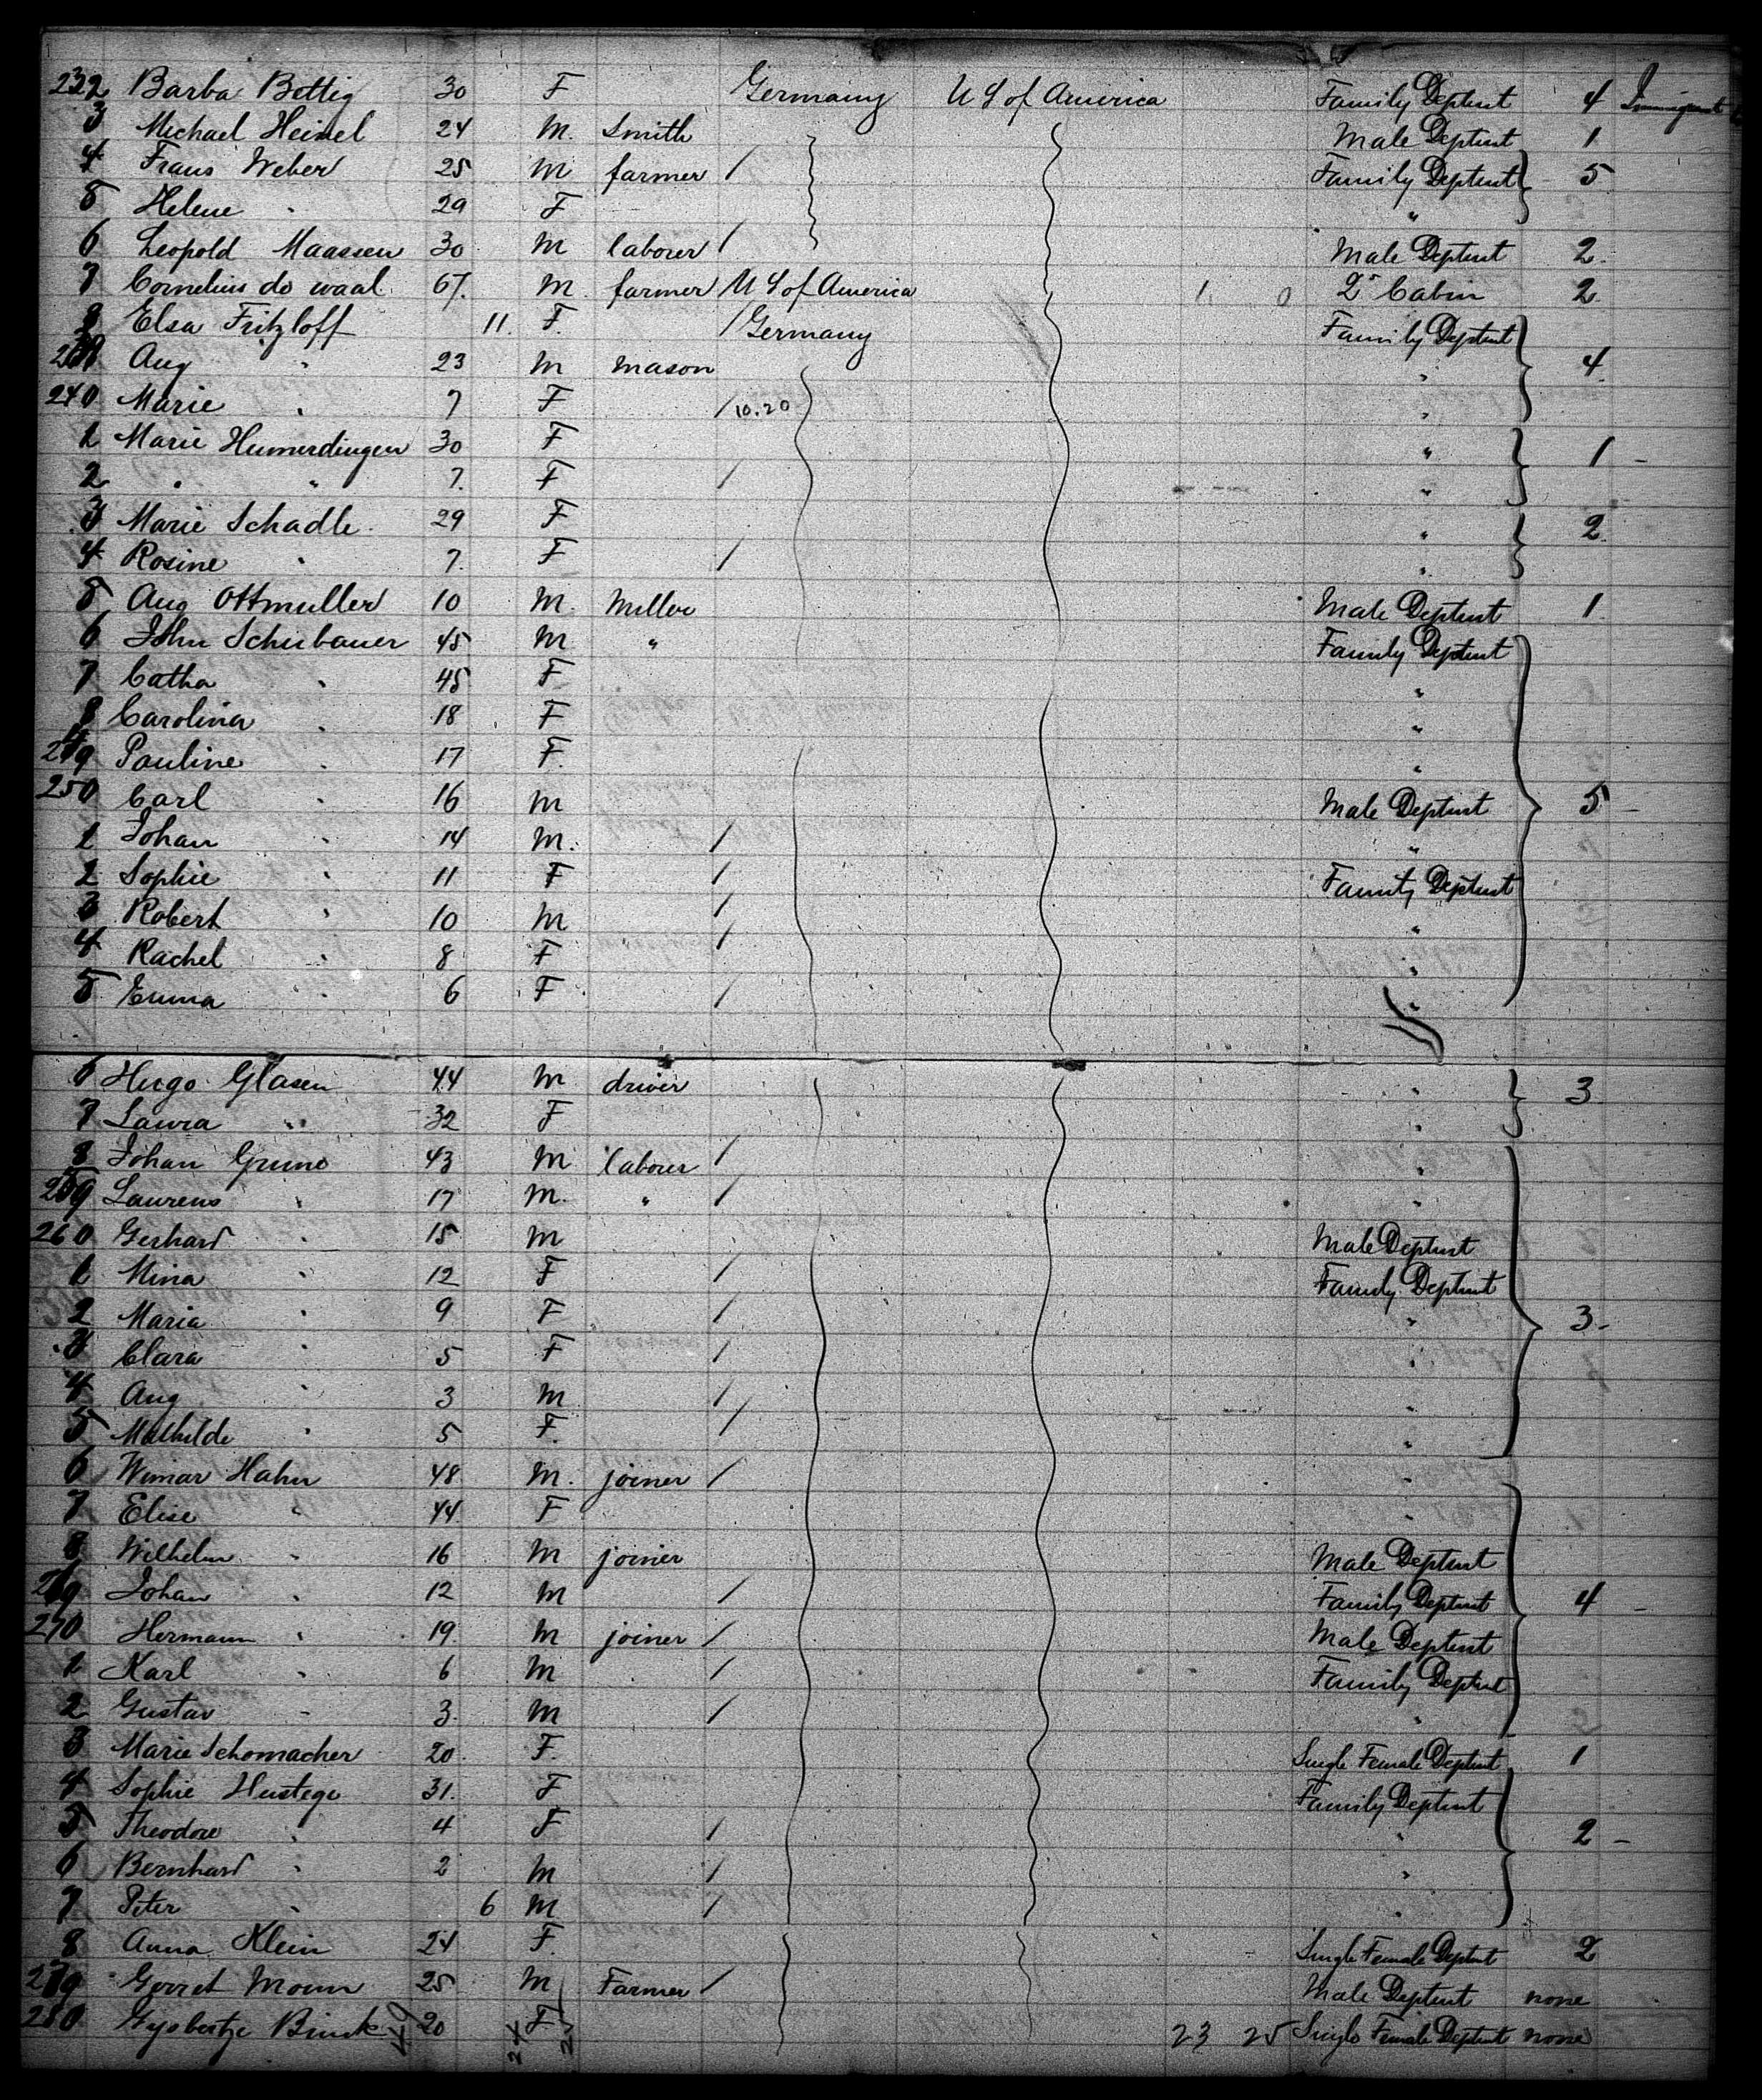 232 Barba Bettig 30 F Germany U S of America Family Deptmt 4
3 Michael Heinel 24 M. Smith Male Deptmt 1
4 Frans Weber 25 M farmer / Family Deptmt 5
5 Helene " 29 F "
6 Leopold Maassen 30 M laborer / Male Deptmt 2
7 Cornelius de waal 67. M. farmer / U S of America 1 0 2d Cabin 2
8 Elsa Fritzloff 11. F. / Germany Family Deptmt
239 Aug " 23 M mason " 4
240 Marie " 7 F / 10.20 "
1 Marie Humerdingen 30 F " 1 -
2 " " 7. F / "
3 Marie Schadle 29 F " 2
4 Rosine " 7. F / "
5 Aug Ottmuller 10 M. Miller Male Deptmt 1
6 John Schubauer 45 M " Family Deptmt
7 Catha " 45 F "
8 Carolina " 18 F "
249 Pauline " 17 F. "
250 Carl " 16 M Male Deptmt 5
1 Johan " 14 M. / "
2 Sophie " 11 F / Family Deptmt
3 Robert " 10 M / "
4 Rachel " 8 F / "
5 Emma " 6 F / "
6 Hugo Glasen 44 M driver " 3
7 Laura " 32 F "
8 Johan Grune 43 M laborer / "
259 Laurens " 17 M. " / "
260 Gerhard " 15 M Male Deptmt
1 Mina " 12 F / Family Deptmt
2 Maria " 9 F / " 3-
3 Clara " 5 F / "
4 Aug " 3 M / "
5 Mathilde " 5 F. / "
6 Wimar Hahn 48 M. joiner / "
7 Elise " 44 F "
8 Wilhelm " 16 M joiner Male Deptmt
269 Johan " 12 M / Family Deptmt 4 -
270 Hermann " 19 M joiner / Male Deptmt
1 Karl " 6 M / Family Deptmt
2 Gustav " 3. M / "
3 Marie Schomacher 20. F. Single Female Deptmt 1
4 Sophie Hustege 31. F Family Deptmt
5 Theodore " 4 F / " 2 -
6 Bernhard " 2 M / "
7 Peter " 6 M / "
8 Anna Klein 24 F. Single Female Deptmt 2
279 Gerret 25 M Farmer / Male Deptmt none
280 Gijsbertje 20 F 23 25 Single Female Deptmt none
49 24 25